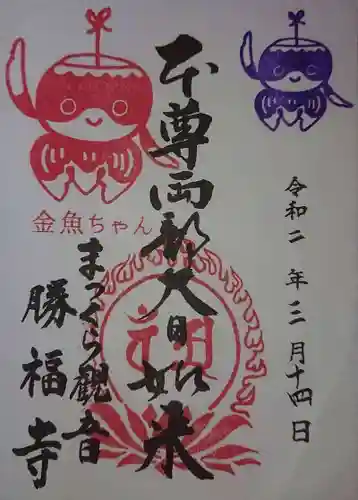 令和二年三月十四日
本尊両部大日如来
金魚ちゃん
まっくら観音
勝福寺